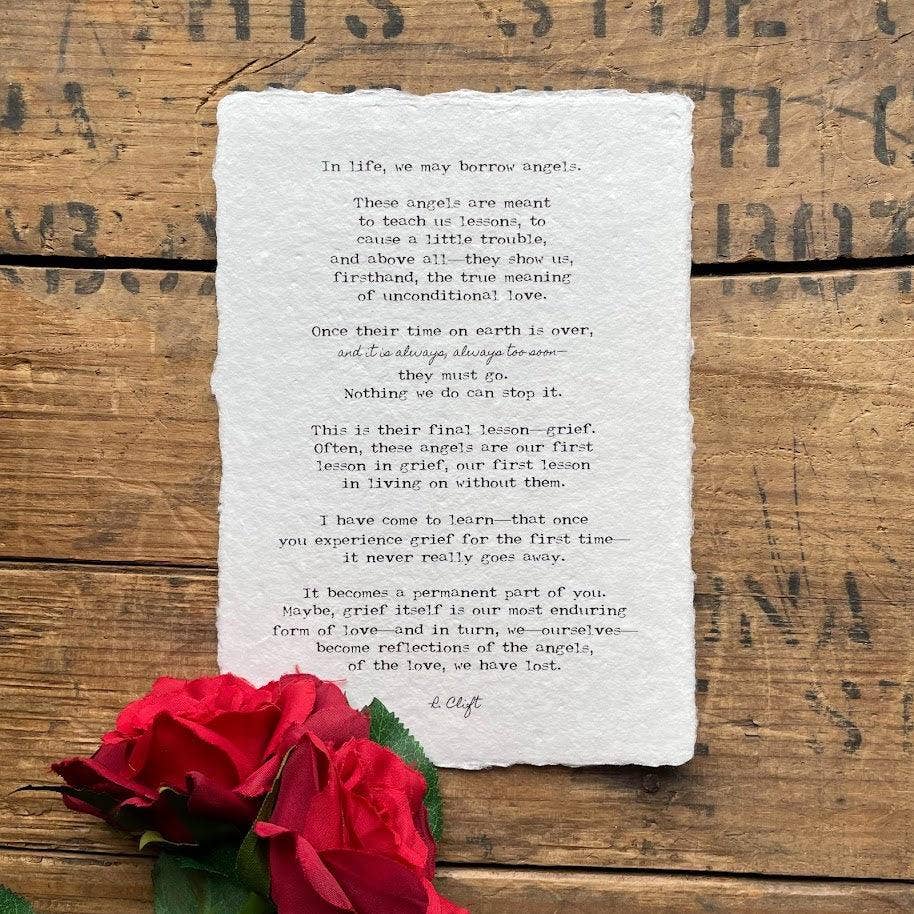 In life, we may borrow angels.
These angels are meant
to teach us lessons, to
cause a little trouble,
and above all—they show us,
firsthand, the true meaning
of unconditional love.
Once their time on earth is over,
and it is always, always too soon—
they must go.
Nothing we do can stop it.
This is their final lesson—grief.
Often, these angels are our first
lesson in grief, our first lesson
in living on without them.
I have come to learn—that once
you experience grief for the first time—
it never really goes away.
It becomes a permanent part of you.
Maybe, grief itself is our most enduring
form of love—and in turn, we—ourselves—
become reflections of the angels,
of the love, we have lost.
R. Clift